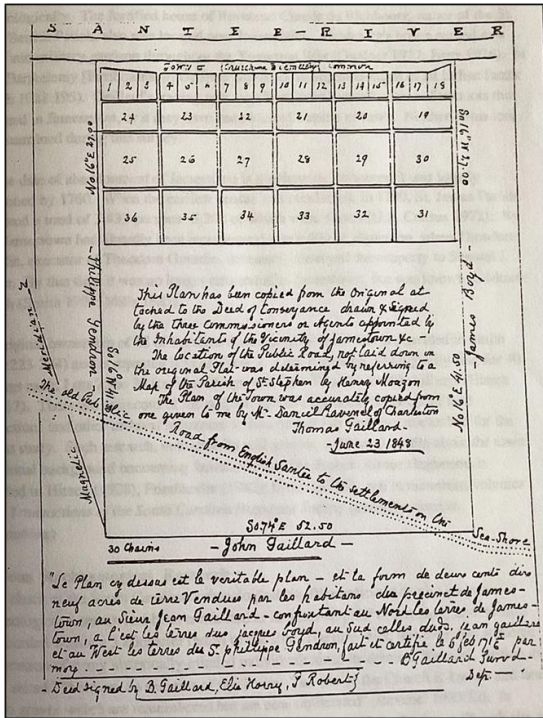 SANTEE-RIVER
Town & Churchune Dicimbly Common
1 2 3 4 5 6 7 8 9 10 11 12 13 14 15 16 17 18
24 23 22 21 20 19
25 26 27 28 29 30
36 35 34 33 32 31
No 16° E 27.00
Philippe Gendron
So 16° W 41.50
So 16° W 27.00
James Boyd
No 16° E 41.50
Magnetic Meridian
This Plan has been copied from the Original at-
tached to the Deed of Conveyance drawn & signed
by the three Commissioners or Agents appointed by
the Inhabitants of the Vicinity of Jamestown &c
The location of the Public Road, not laid down in
the original Plat was determined by referring to a
Map of the Parish of St Stephen by Henry Mouzon
The Plan of the Town was accurately copied from
one given to me by Mr Daniel Ravenel of Charleston
Thomas Gaillard
June 23 1848
The old Public Road from English Santee to the settlements on the Sea-Shore
So 74° E 52.50
30 Chains
John Gaillard
"Le Plan cy dessus est le veritable plan - et la form de deux cents dix
neuf acres de terre Vendues par les habitans du precinct de James-
town, au Sieur Jean Gaillard - confrontant au Nord les terres de James-
town, a l'est les terres du Sr jacques boyd, au Sud celles duds. jean gaillard
et au West les terres du Sr. phillippe Gendron, fait et certifié le 6 feb par
moy B Gaillard Survd
Dep
Deed signed by B. Gaillard, Elie Horry, P Robert